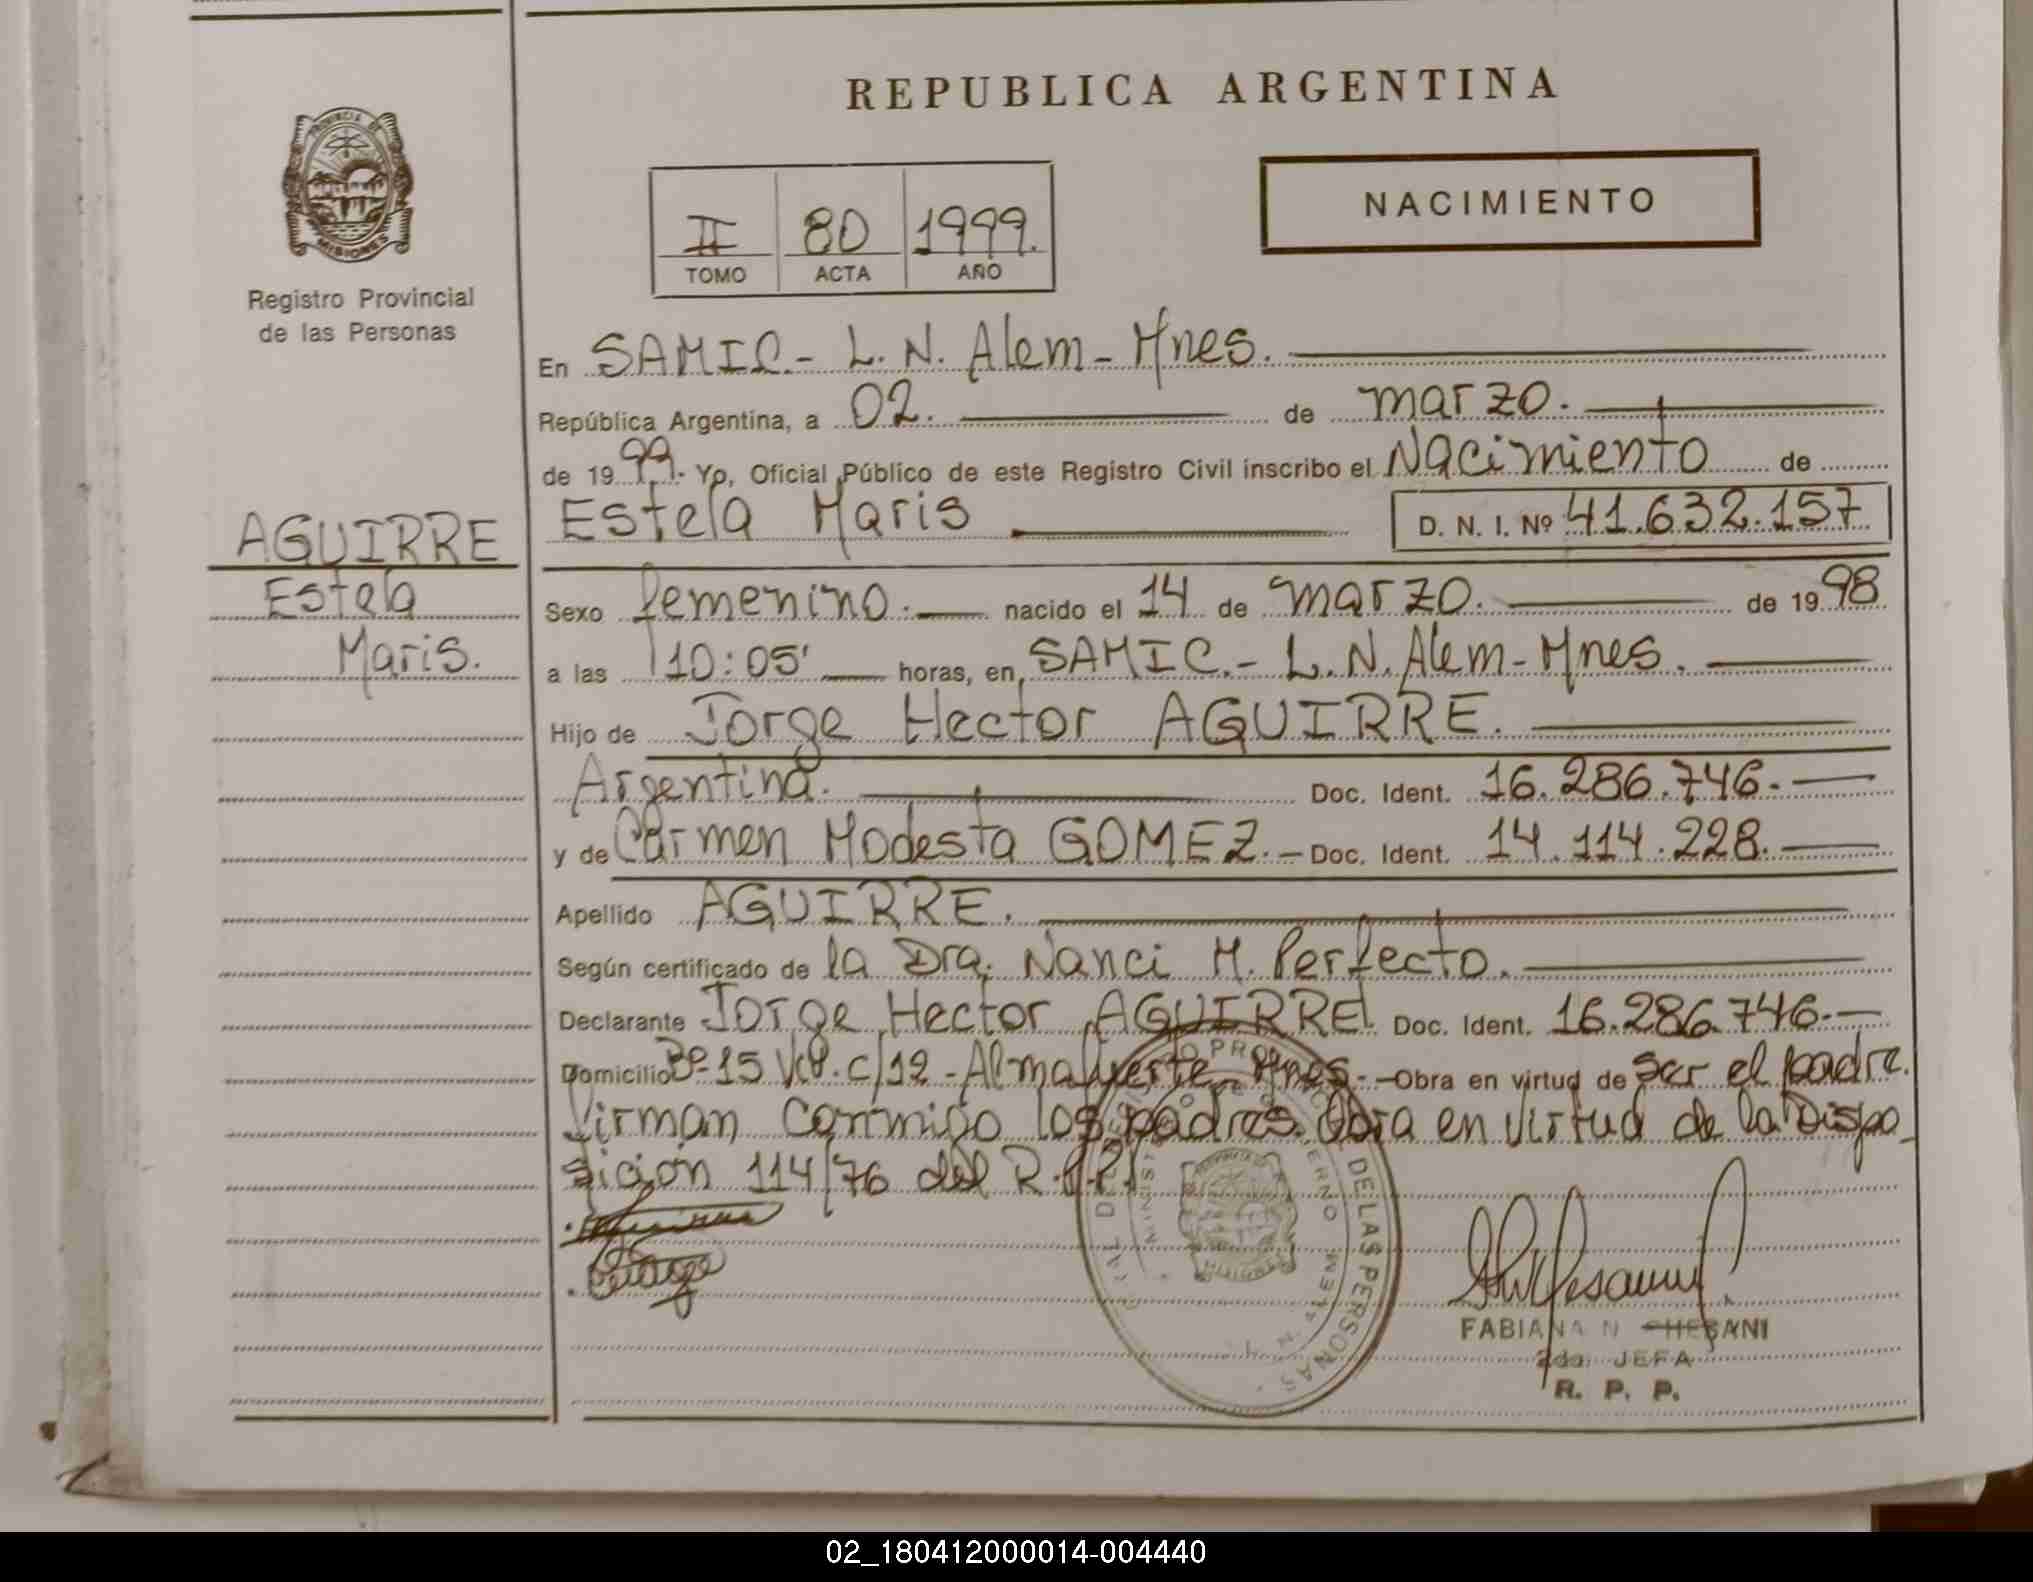 REPUBLICA ARGENTINA
PROVINCIA DE
MISIONES
Registro Provincial
de las Personas
NACIMIENTO
II 80 1999.
TOMO ACTA AÑO
En SAMIC.- L. N. Alem - Mnes.
República Argentina, a 02. de marzo.
de 1999. Yo, Oficial Público de este Registro Civil inscribo el Nacimiento de
Estela Maris D. N. I. Nº 41.632.157
AGUIRRE
Estela
Maris.
Sexo femenino. nacido el 14 de marzo. de 1998
a las 10:05' horas, en SAMIC.- L. N. Alem - Mnes.
Hijo de Jorge Hector AGUIRRE.
Argentina. Doc. Ident. 16.286.746.
y de Carmen Modesta GOMEZ. Doc. Ident. 14.114.228.
Apellido AGUIRRE.
Según certificado de la Dra. Nanci M. Perfecto.
Declarante Jorge Hector AGUIRRE. Doc. Ident. 16.286.746.
Domicilio Bº 15 Viv. c/12 - Almafuerte Mnes. Obra en virtud de ser el padre.
Firman conmigo los padres. Obra en virtud de la Dispo
sición 114/76 del R.P.P.
DE LAS PERSONAS
FABIANA N CHESANI
2da. JEFA
R. P. P.
02_180412000014-004440